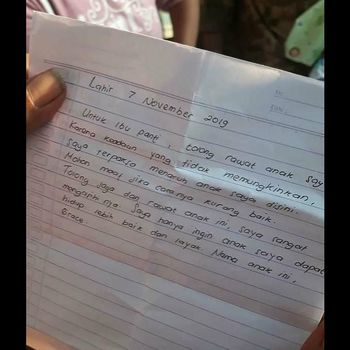 Lahir 7 November 2019
Untuk Ibu panti, tolong rawat anak say
Karena keadaan yang tidak memungkinkan,
saya terpaksa menaruh anak saya disini.
Mohon maaf jika caranya kurang baik.
Tolong jaga dan rawat anak ini, saya sangat
menyanti nya. Saya hanya ingin anak saya dapat
hidup lebih baik dan layak. Nama anak ini,
Grace